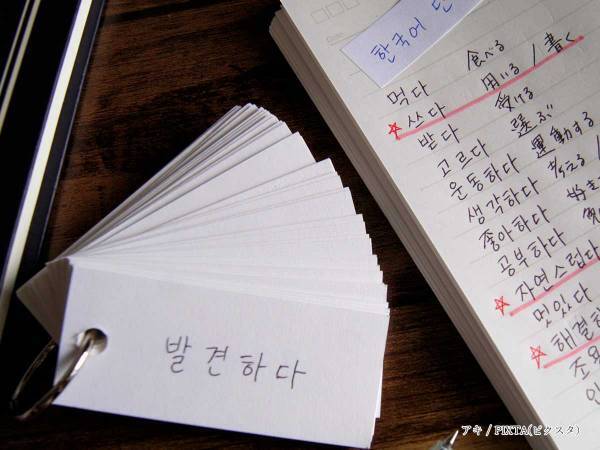 한국어 단
먹다 食べる
☆쓰다 用いる/書く
받다 受ける
고르다 選ぶ
운동하다 運動する
생각하다 考える/
좋아하다
공부하다
☆자연스럽다
멋있다
☆해결하
조용
발견하다
アキ/PIXTA(ピクスタ)